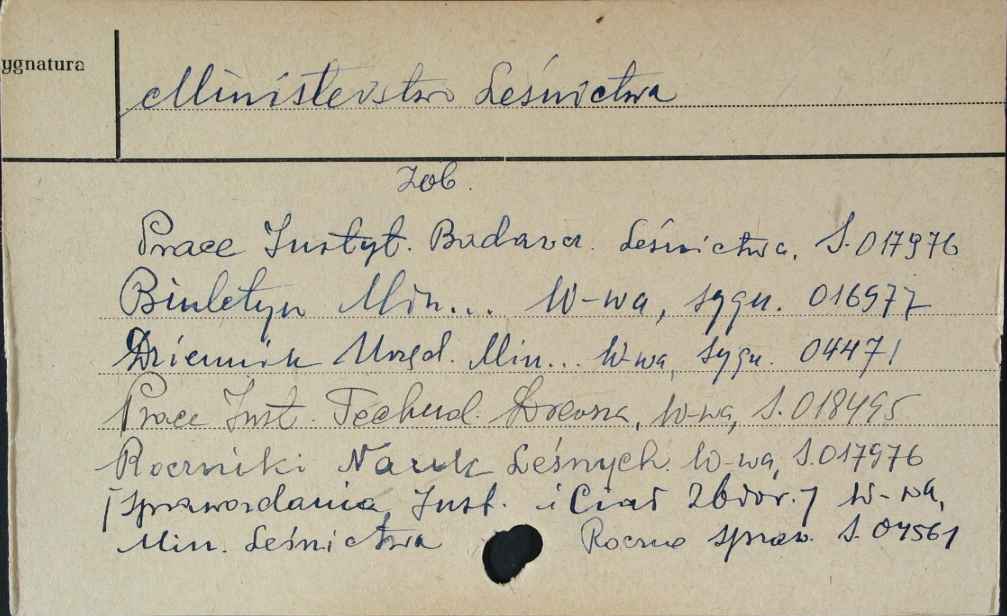 ygnatura
Ministerstwo Leśnictwa
Zob.
Prace Instyt. Badawcz. Leśnictwa, S. 017976
Biuletyn Min... W-wa, sygn. 016977
Dziennik Urzęd. Min... W-wa, sygn. 04471
Prace Inst. Technol. Drewna, W-wa, S. 018495
Roczniki Nauk Leśnych. W-wa, S. 017976
[Sprawozdania Inst. i Ciał Zbior.] W-wa,
Min. Leśnictwa Roczne spraw. S. 04561